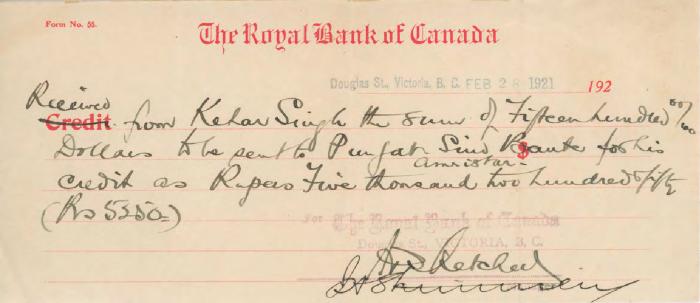 Form No. 55.
The Royal Bank of Canada
Douglas St., Victoria, B. C. FEB 28 1921
192
Received
Credit from Kehar Singh the sum of Fifteen hundred 00/00
Dollars to be sent to Punjab Sind Bank for his
Amristar.
credit as Rupees Five thousand two hundred & fifty
(Rs 5250.-)
For The Royal Bank of Canada
Douglas St., VICTORIA, B. C.